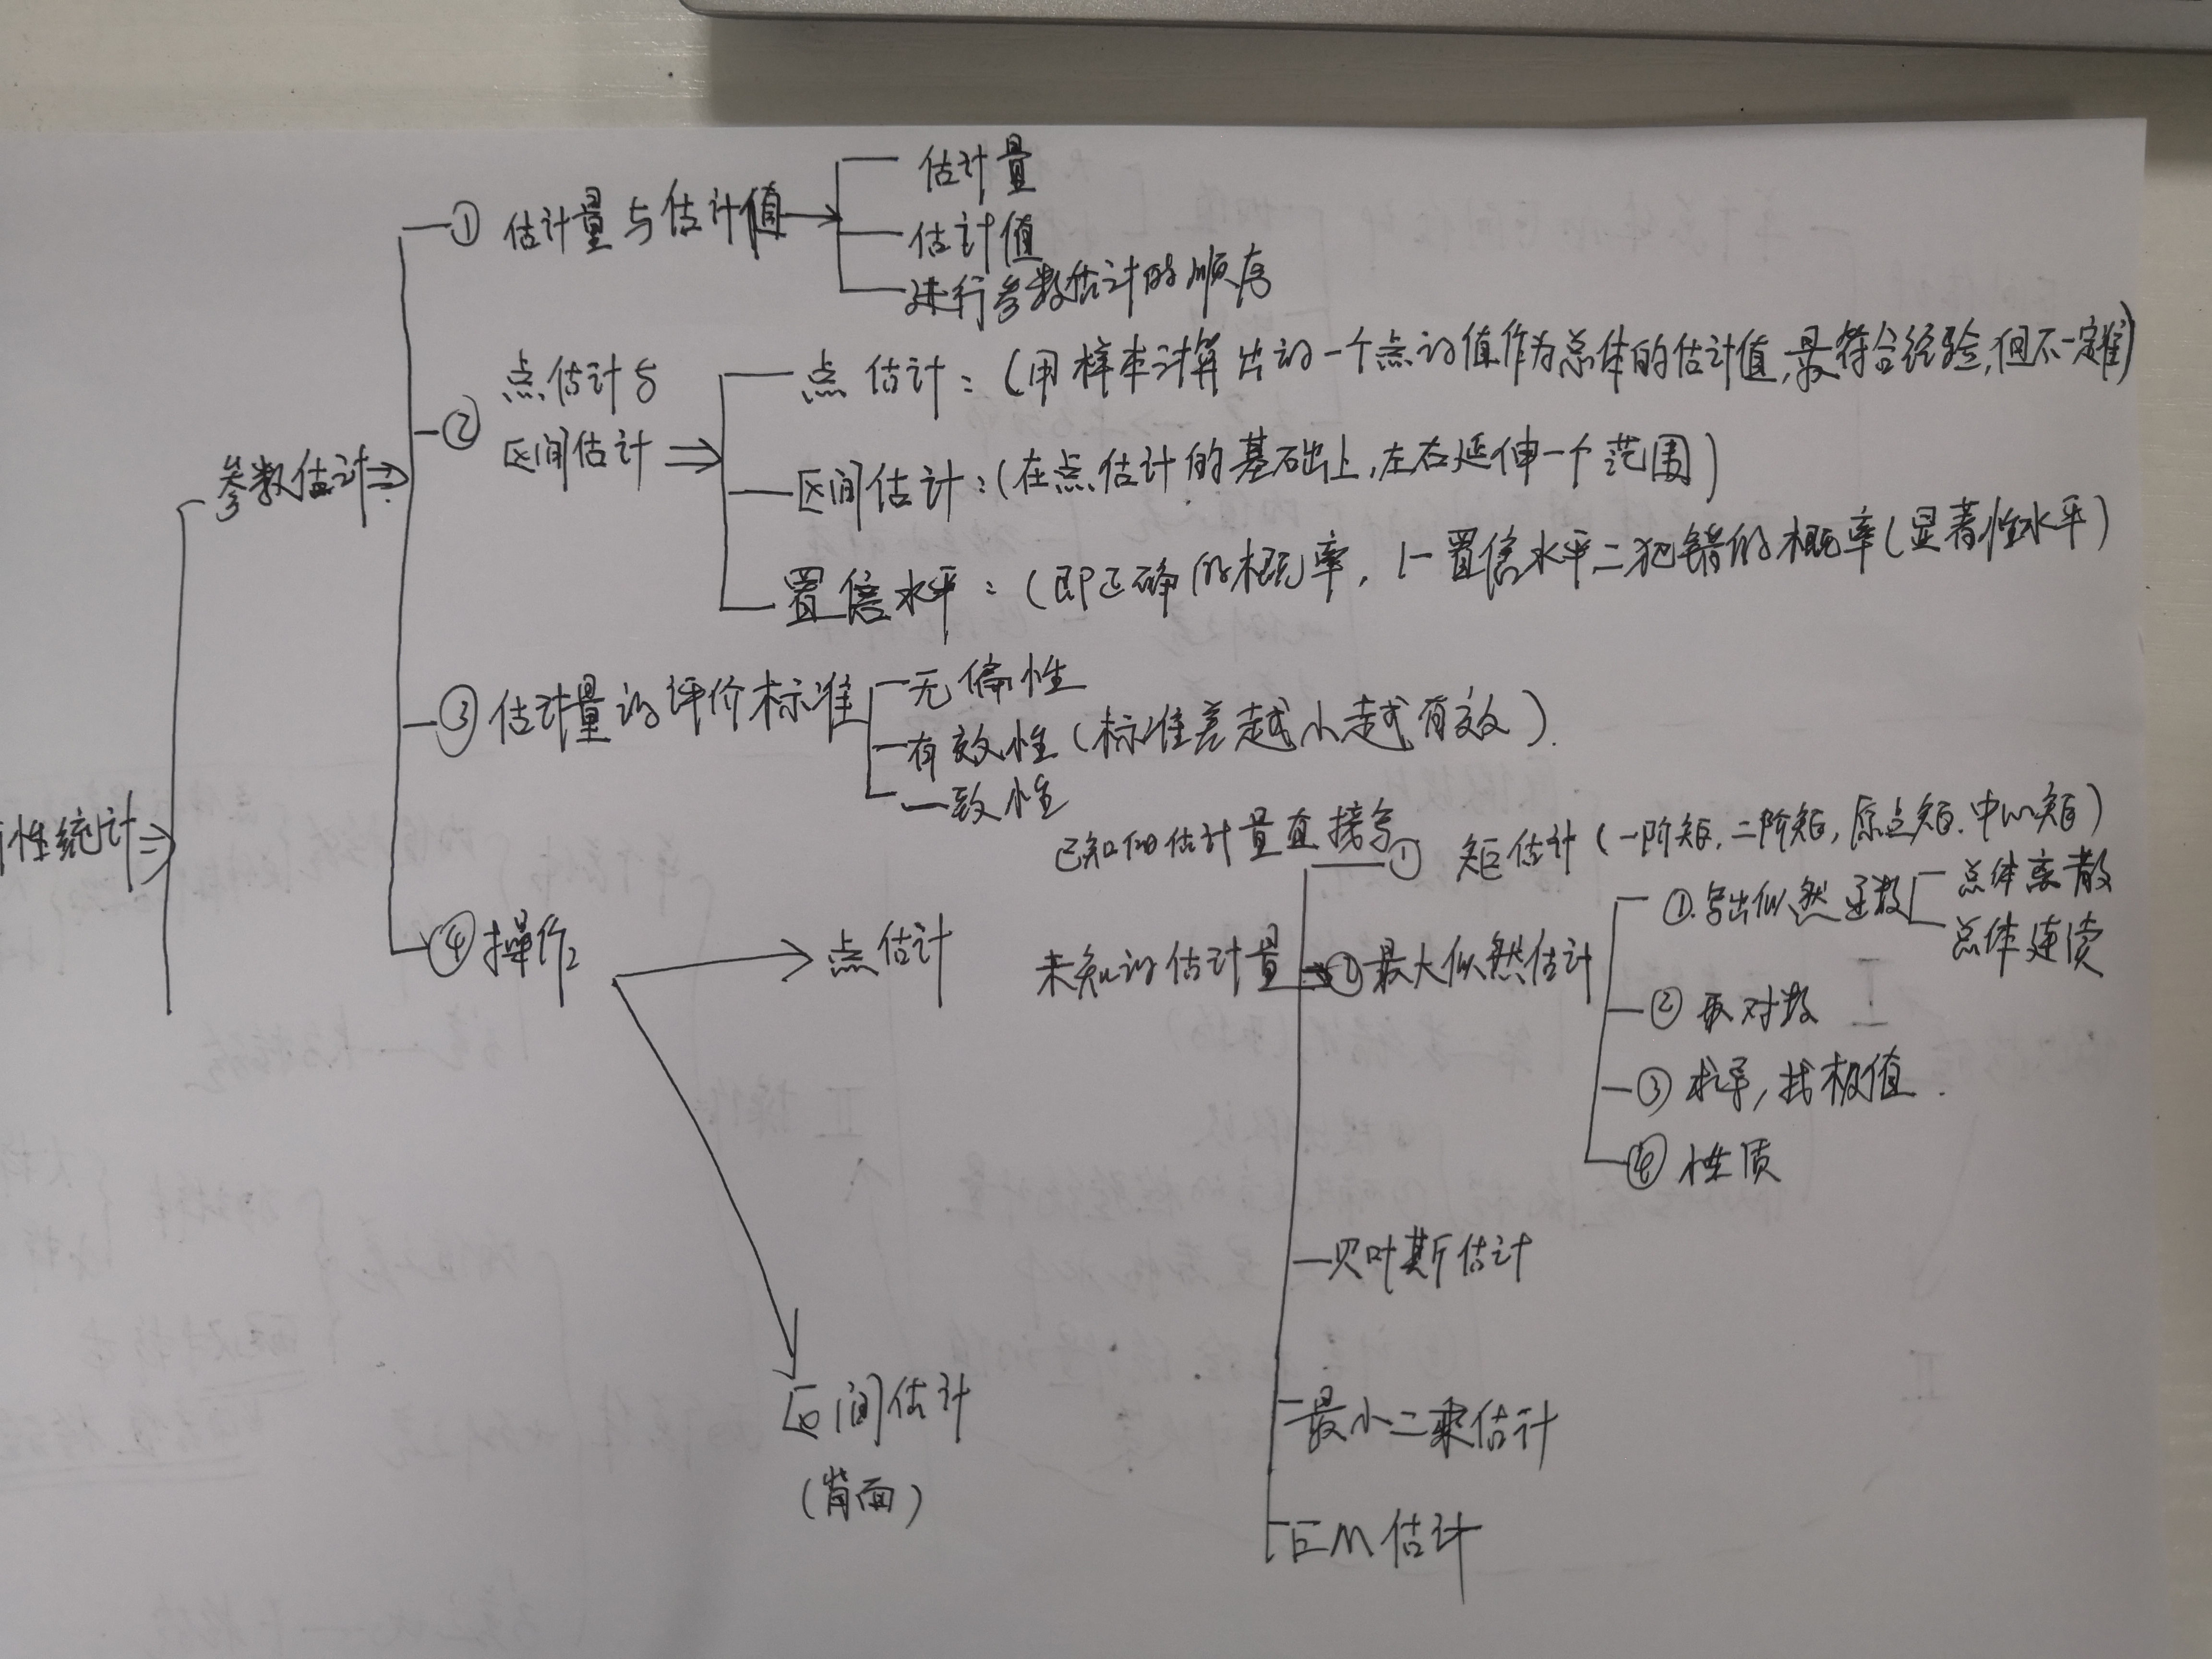 性统计
参数估计
① 估计量与估计值
估计量
估计值
进行参数估计的顺序
② 点估计与
区间估计
点估计：（用样本计算出的一个点的值作为总体的估计值，最符合经验，但不一定准）
区间估计：（在点估计的基础上，左右延伸一个范围）
置信水平：（即正确的概率，1-置信水平=犯错的概率（显著性水平）
③ 估计量的评价标准
无偏性
有效性（标准差越小越有效）.
一致性
④ 操作
点估计
已知的估计量直接写
① 矩估计（一阶矩，二阶矩，原点矩．中心矩）
未知的估计量
② 最大似然估计
①.写出似然函数
总体离散
总体连续
② 取对数
③ 求导，找极值．
④ 性质
贝叶斯估计
最小二乘估计
EM估计
区间估计
（背面）